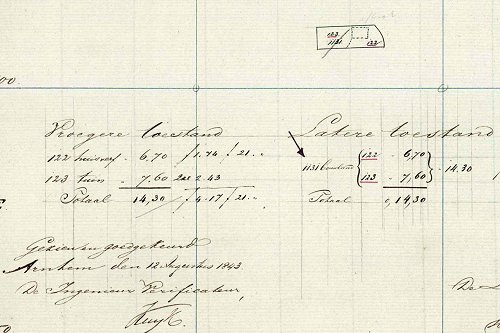 122
1131
122
Vroegere toestand
122 huis erf - 6,70 ƒ 1.74 ƒ 21. "
123 tuin - 7.60 2kl 2.43
Totaal 14,30 ƒ 4.17 ƒ 21. "
Gezien en goedgekeurd
Arnhem den 12 Augustus 1843.
De Ingenieur Verificateur,
Latere toestand
1131 bouland { 122 - 6,70
123 - 7,60 } - 14.30
Totaal 0,14,30